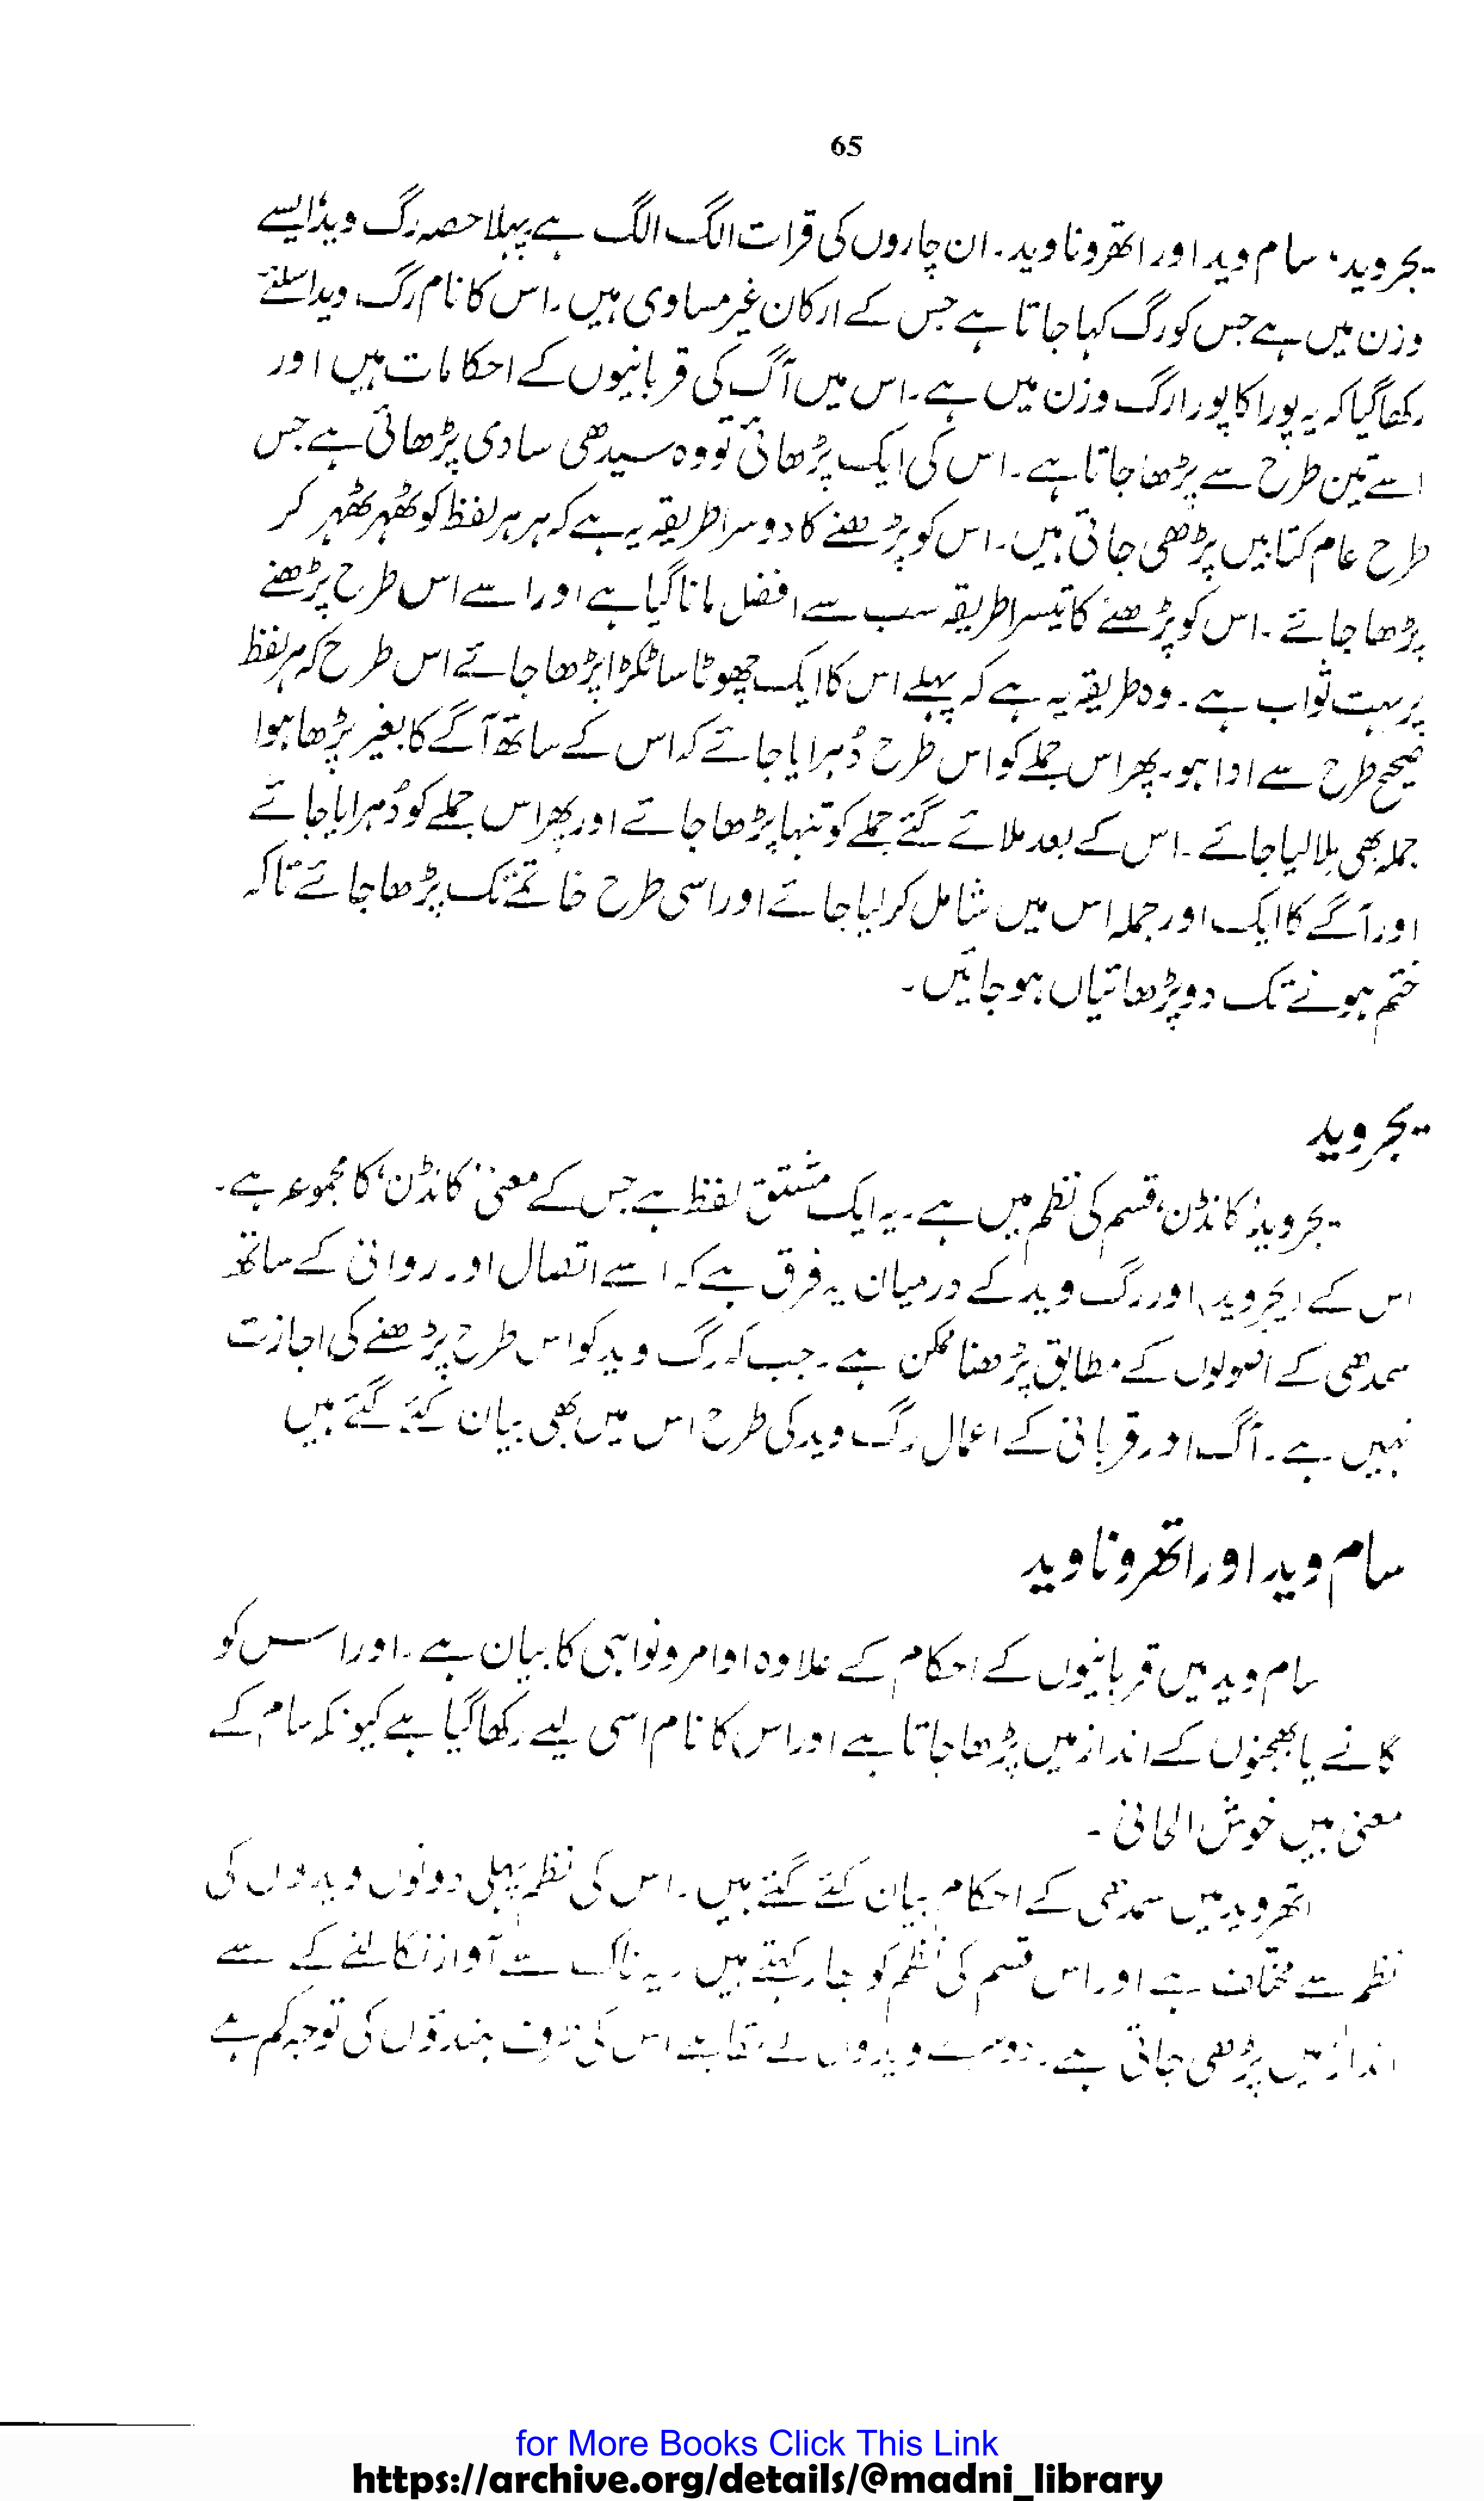 65
یجروید، سام وید اور اتھروناوید۔ ان چاروں کی قرات الگ الگ ہے پہلا حصہ رگ وید، ایسے
وزن میں ہے جس کو رگ کہا جاتا ہے جس کے ارکان غیر مساوی ہیں۔ اس کا نام رگ وید اسلئے
رکھا گیا کہ یہ پورا کا پورا رگ وزن میں ہے۔ اس میں آگ کی قربانیوں کے احکامات ہیں اور
اسے تین طرح سے پڑھا جاتا ہے۔ اس کی ایک پڑھائی تو وہ سیدھی سادی پڑھائی ہے جس
طرح عام کتابیں پڑھی جاتی ہیں۔ اس کو پڑھنے کا دوسرا طریقہ یہ ہے کہ ہر ہر لفظ کو ٹھہر ٹھہر کر
پڑھا جائے۔ اس کو پڑھنے کا تیسرا طریقہ سب سے افضل مانا گیا ہے اور اسے اس طرح پڑھنے
پر بہت ثواب ہے۔ وہ طریقہ یہ ہے کہ پہلے اس کا ایک چھوٹا سا ٹکڑا پڑھا جائے اس طرح کہ ہر لفظ
صحیح طرح سے ادا ہو۔ پھر اس جملے کو اس طرح دُہرایا جائے کہ اس کے ساتھ آگے کا بغیر پڑھا ہوا
جملہ بھی ملا لیا جائے۔ اس کے بعد ملائے گئے جملے کو تنہا پڑھا جائے اور پھر اس جملے کو دُہرایا جائے
اور آگے کا ایک اور جملہ اس میں شامل کر لیا جائے اور اسی طرح خاتمے تک پڑھا جائے تاکہ
ختم ہونے تک دو پڑھائیاں ہو جائیں۔
یجروید
یجروید، کانڈن، قسم کی نظم میں ہے۔ یہ ایک مشتق لفظ ہے جس کے معنی، کانڈن، کا مجموعہ ہے۔
اس کے (یجروید) اور رگ وید کے درمیان یہ فرق ہے کہ اسے اتصال اور روانی کے ساتھ
سمدھی کے اصولوں کے مطابق پڑھنا ممکن ہے۔ جب کہ رگ وید کو اس طرح پڑھنے کی اجازت
نہیں ہے۔ آگ اور قربانی کے اعمال رگ وید کی طرح اس میں بھی بیان کئے گئے ہیں
سام وید اور اتھروناوید
سام وید میں قربانیوں کے احکام کے علاوہ اوامر و نواہی کا بیان ہے۔ اور اس کو
گانے یا بھجنوں کے انداز میں پڑھا جاتا ہے اور اس کا نام اسی لیے رکھا گیا ہے کیونکہ سام کے
معنی ہیں خوش الحانی۔
اتھروید میں سمدھی کے احکام بیان کئے گئے ہیں۔ اس کی نظم پہلی دونوں ویدوں کی
نظم سے مختلف ہے اور اس قسم کی نظم کو جار کہتے ہیں۔ یہ ناک سے آواز نکالنے کے سے
انداز میں پڑھی جاتی ہے۔ دوسرے ویدوں کے اس کی طرف ہندوؤں کی توجہ کم ہے
for More Books Click This Link
https://archive.org/details/@madni_library